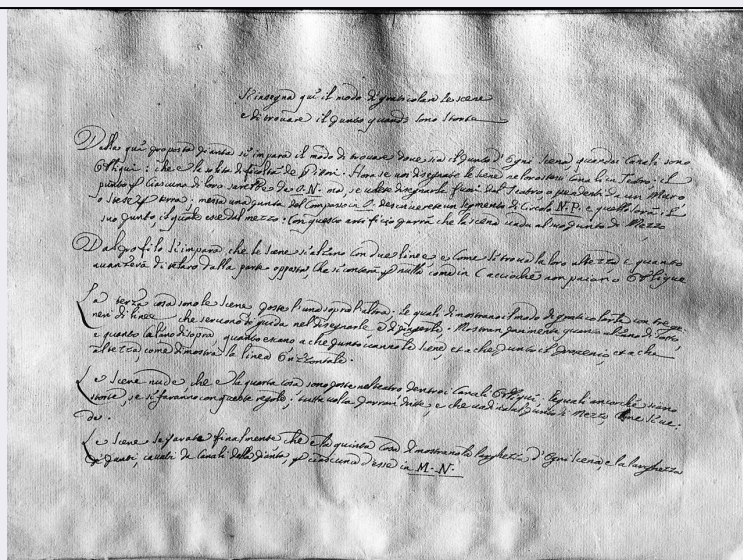 Si insegna quì il modo di graticolar le scene
e di trovare il punto quando sono storte
Dalla quì proposta pianta si impara il modo di trovare dove sia il punto d'ogni scena quando i Canali sono
obliqui: che è la solita difficoltà de Pittori. Hora se voi disegnate le scene nelli vostri Canali in Teatro; il
punto di Ciascuna di loro sarebbe da O.N. ma, se volete disegnarle fuori del Teatro, o pendenti da un Muro
o stese per terra: messa una punta del Compasso in O. descriverete un segmento di Circolo N.P. e quello sarà il
suo punto, il quale esce dal mezzo: Con questo artificio parrà che la scena vada al suo punto di Mezzo
Dal profilo si impara, che le scene s'alzano con due linee e come si trova la loro altezza e quanto
della parte opposta, che si conterà per nulla come in C acciochè non paiano oblique
La terza cosa sono le Scene poste l'una sopra l'altra: le quali dimostrano il modo di graticolarle con tre ge=
neri di linee che servono di guida nel disegnarle e dipingerle. Mostran parimente quanto alzano di sotto,
e quanto calano di sopra, quanto escano a che punto vanno le scene, et a che punto il proscenio, et a che
altezza come dimostra la linea orizontale.
Le Scene nude, che è la quarta cosa sono poste nel teatro dentro i Canali obliqui; le quali ancorchè siano
storte, se si faranno con queste regole; tutte volta parran dritte, e che vadin al punto di Mezzo, Come si ve=
de.
Le Scene separate finalmente che è la quinta cosa dimostrano la larghezza d'ogni scena, e la larghezza
de punti, cavati da Canali della pianta, per ciascuna d'esse in M.N.